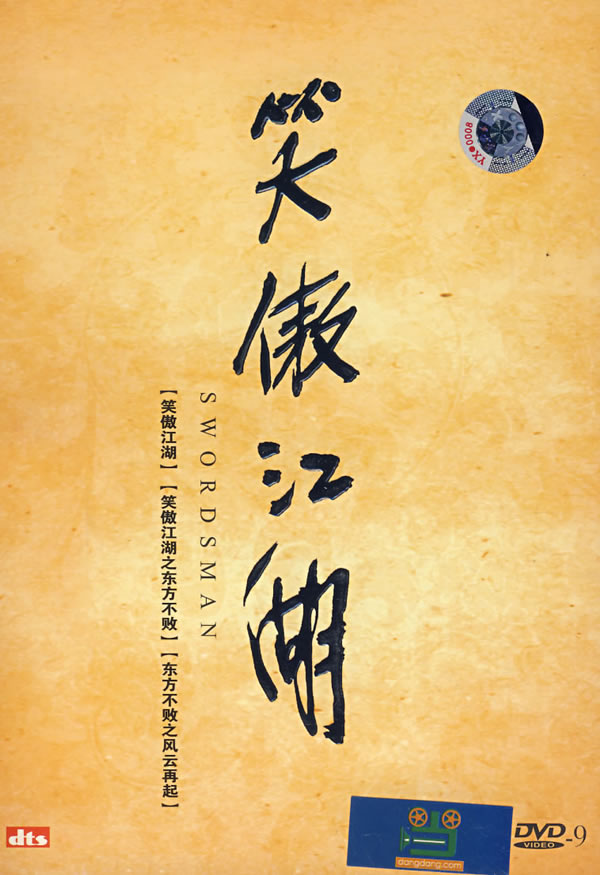 笑傲江湖
SWORDSMAN
【笑傲江湖】【笑傲江湖之东方不败】【东方不败之风云再起】
YX●00008
dts
dangdang.com
DVD-9
VIDEO